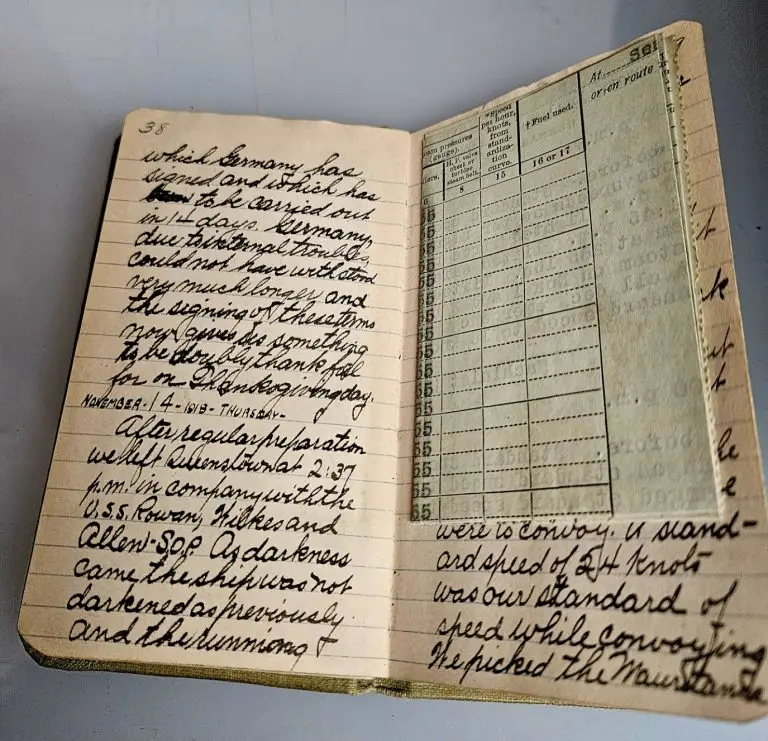 38
which Germany has
signed and which has
to be carried out
in 14 days. Germany,
due to internal trouble,
could not have withstood
very much longer and
the signing of these terms
now gives us something
to be doubly thankful
for on Thanksgiving day.
NOVEMBER-14-1918-THURSDAY-
After regular preparation
we left Queenstown at 2:37
p.m. in company with the
U.S.S. Rowan, Wilkes and
Allen-S.O.P. As darkness
came the ship was not
darkened as previously
and the running
At
or en route
pressures
(gauge).
H. P. valve
chest or
turbine
steam belt.
*Speed
per hour,
knots,
from
stand-
ardiza-
tion
curve.
† Fuel used.
8
15
16 or 17
55
55
55
55
55
55
55
55
55
55
55
55
55
55
were to convoy. A stand-
ard speed of 24 knots
was our standard of
speed while convoying
We picked the Mauretania